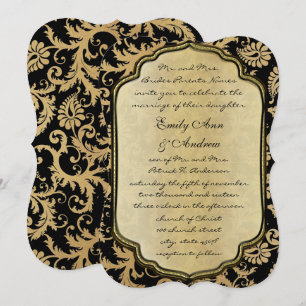 Mr. and Mrs.
Brides Parents Names
invite you to celebrate the
marriage of their daughter
Emily Ann
& Andrew
son of Mr. and Mrs.
Patrick G. Anderson
saturday the fifth of november
two thousand and sixteen
three o'clock in the afternoon
church of Christ
69 church street
city, state
reception to follow